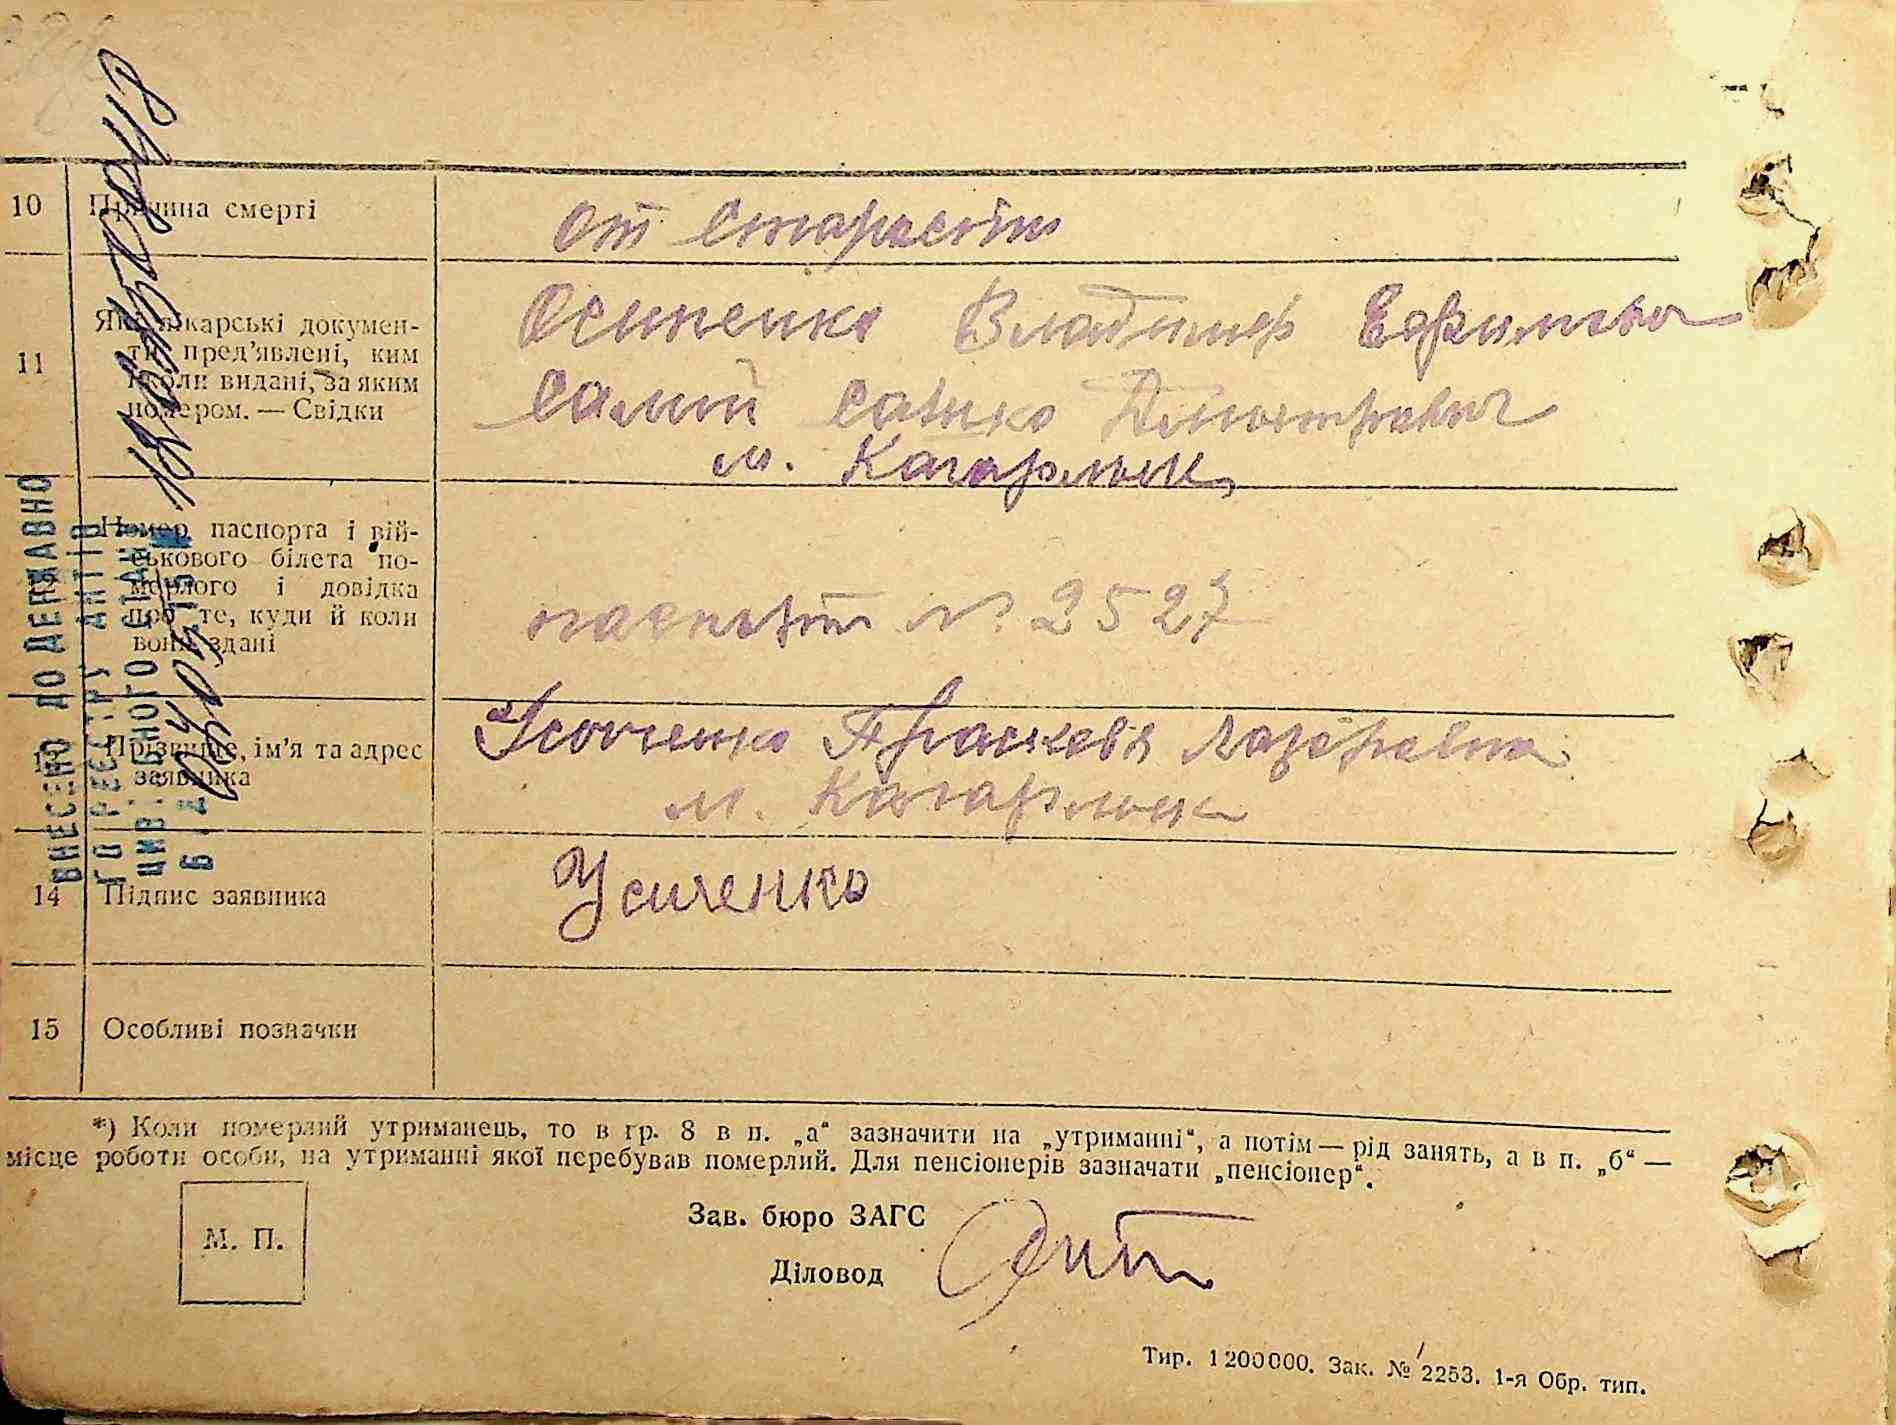 10 Причина смерті
от старости
11 Які лікарські докумен-
ти пред'явлені, ким
і коли видані, за яким
номером. — Свідки
Осипенко Владимир
Салий Дмитрович
м. Кагарлык
Номер паспорта і вій-
ськового білета по-
мерлого і довідка
про те, куди й коли
вони здані
паспорт № 2527
13 Прізвище, ім'я та адрес
заявника
Усиченко Прасковя Лазаревна
м. Кагарлык
14 Підпис заявника
Усиченко
15 Особливі позначки
ВНЕСЕНО ДО ДЕРЖАВНО
ГО РЕЄСТРУ АКТІВ
ЦИВІЛЬНОГО СТАНУ
*) Коли померлий утриманець, то в гр. 8 в п. „а“ зазначити на „утриманні“, а потім — рід занять, а в п. „б“ —
місце роботи особи, на утриманні якої перебував померлий. Для пенсіонерів зазначати „пенсіонер“.
М. П.
Зав. бюро ЗАГС
Діловод
Тир. 1200000. Зак. № 2253. 1-я Обр. тип.